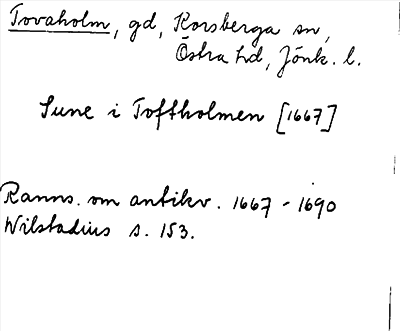 Tovaholm, gd, Korsberga sn,
Östra hd, Jönk. l.
Sune i Toftholmen [1667]
Ranns. om antikv. 1667 - 1690
Wilstadius s. 153.